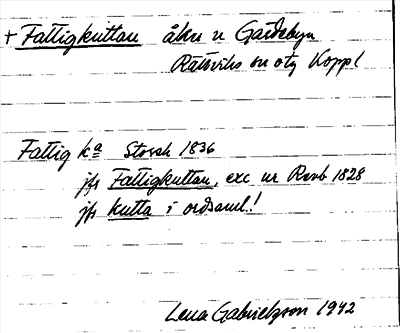 + Fattigkuttan åker n Gärdebyn
Rättviks sn otg Koppl
Fattig kª Storsk 1836
jfr Fattigkuttan, exc ur Renb 1828
jfr kutta i ordsaml.!
Lena Gabrielsson 1942